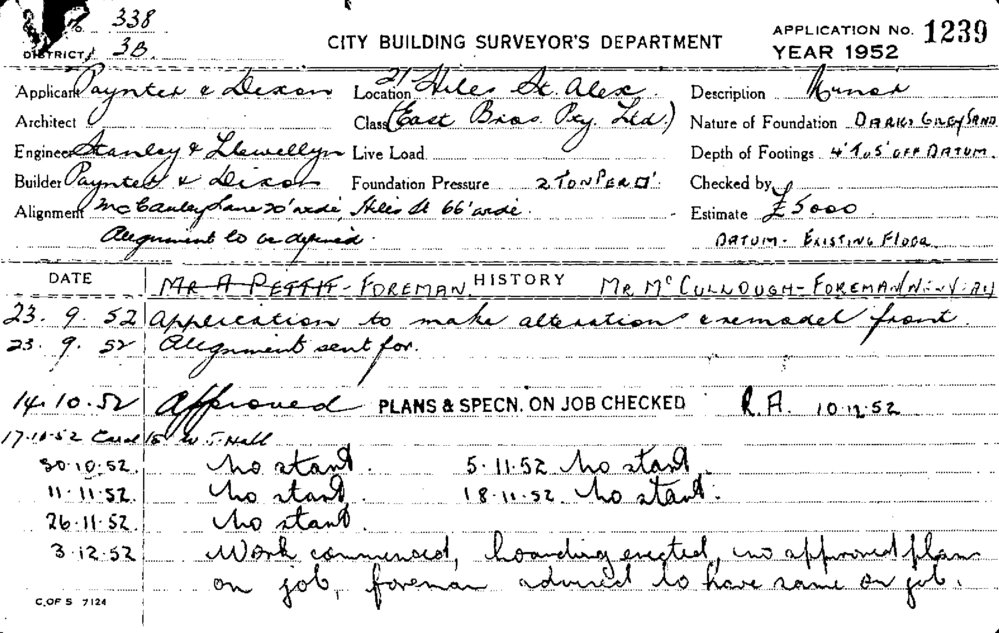 No 338
DISTRICT 3B.
CITY BUILDING SURVEYOR'S DEPARTMENT
APPLICATION No. 1239
YEAR 1952
Applicant Paynter & Dixon Location 21 Hiles St. Alex. Description Minor
Architect Class (East Bros. Pty. Ltd.) Nature of Foundation DARK GREY SAND
Engineer Stanley & Llewellyn Live Load Depth of Footings 4' TO 5' OFF DATUM.
Builder Paynter & Dixon Foundation Pressure 2 TON PER □'. Checked by
Alignment McCauley Lane 20' wide, Hiles St 66' wide. Estimate £5000
Alignment to be defined. DATUM - EXISTING FLOOR
DATE HISTORY
MR A PETTIT - FOREMAN. MR McCULLOUGH - FOREMAN
23. 9. 52 Application to make alterations & remodel front.
23. 9. 52 Alignment sent for.
14.10.52 Approved PLANS & SPECN. ON JOB CHECKED R.A. 10.12.52
17.10.52 Card to W J. Hall
30.10.52. No start. 5.11.52 No start.
11.11.52. No start. 18.11.52. No start.
26.11.52 No start.
3.12.52 Work commenced, hoarding erected, no approved plans
on job, foreman advised to have same on job.
C. OF S 7124